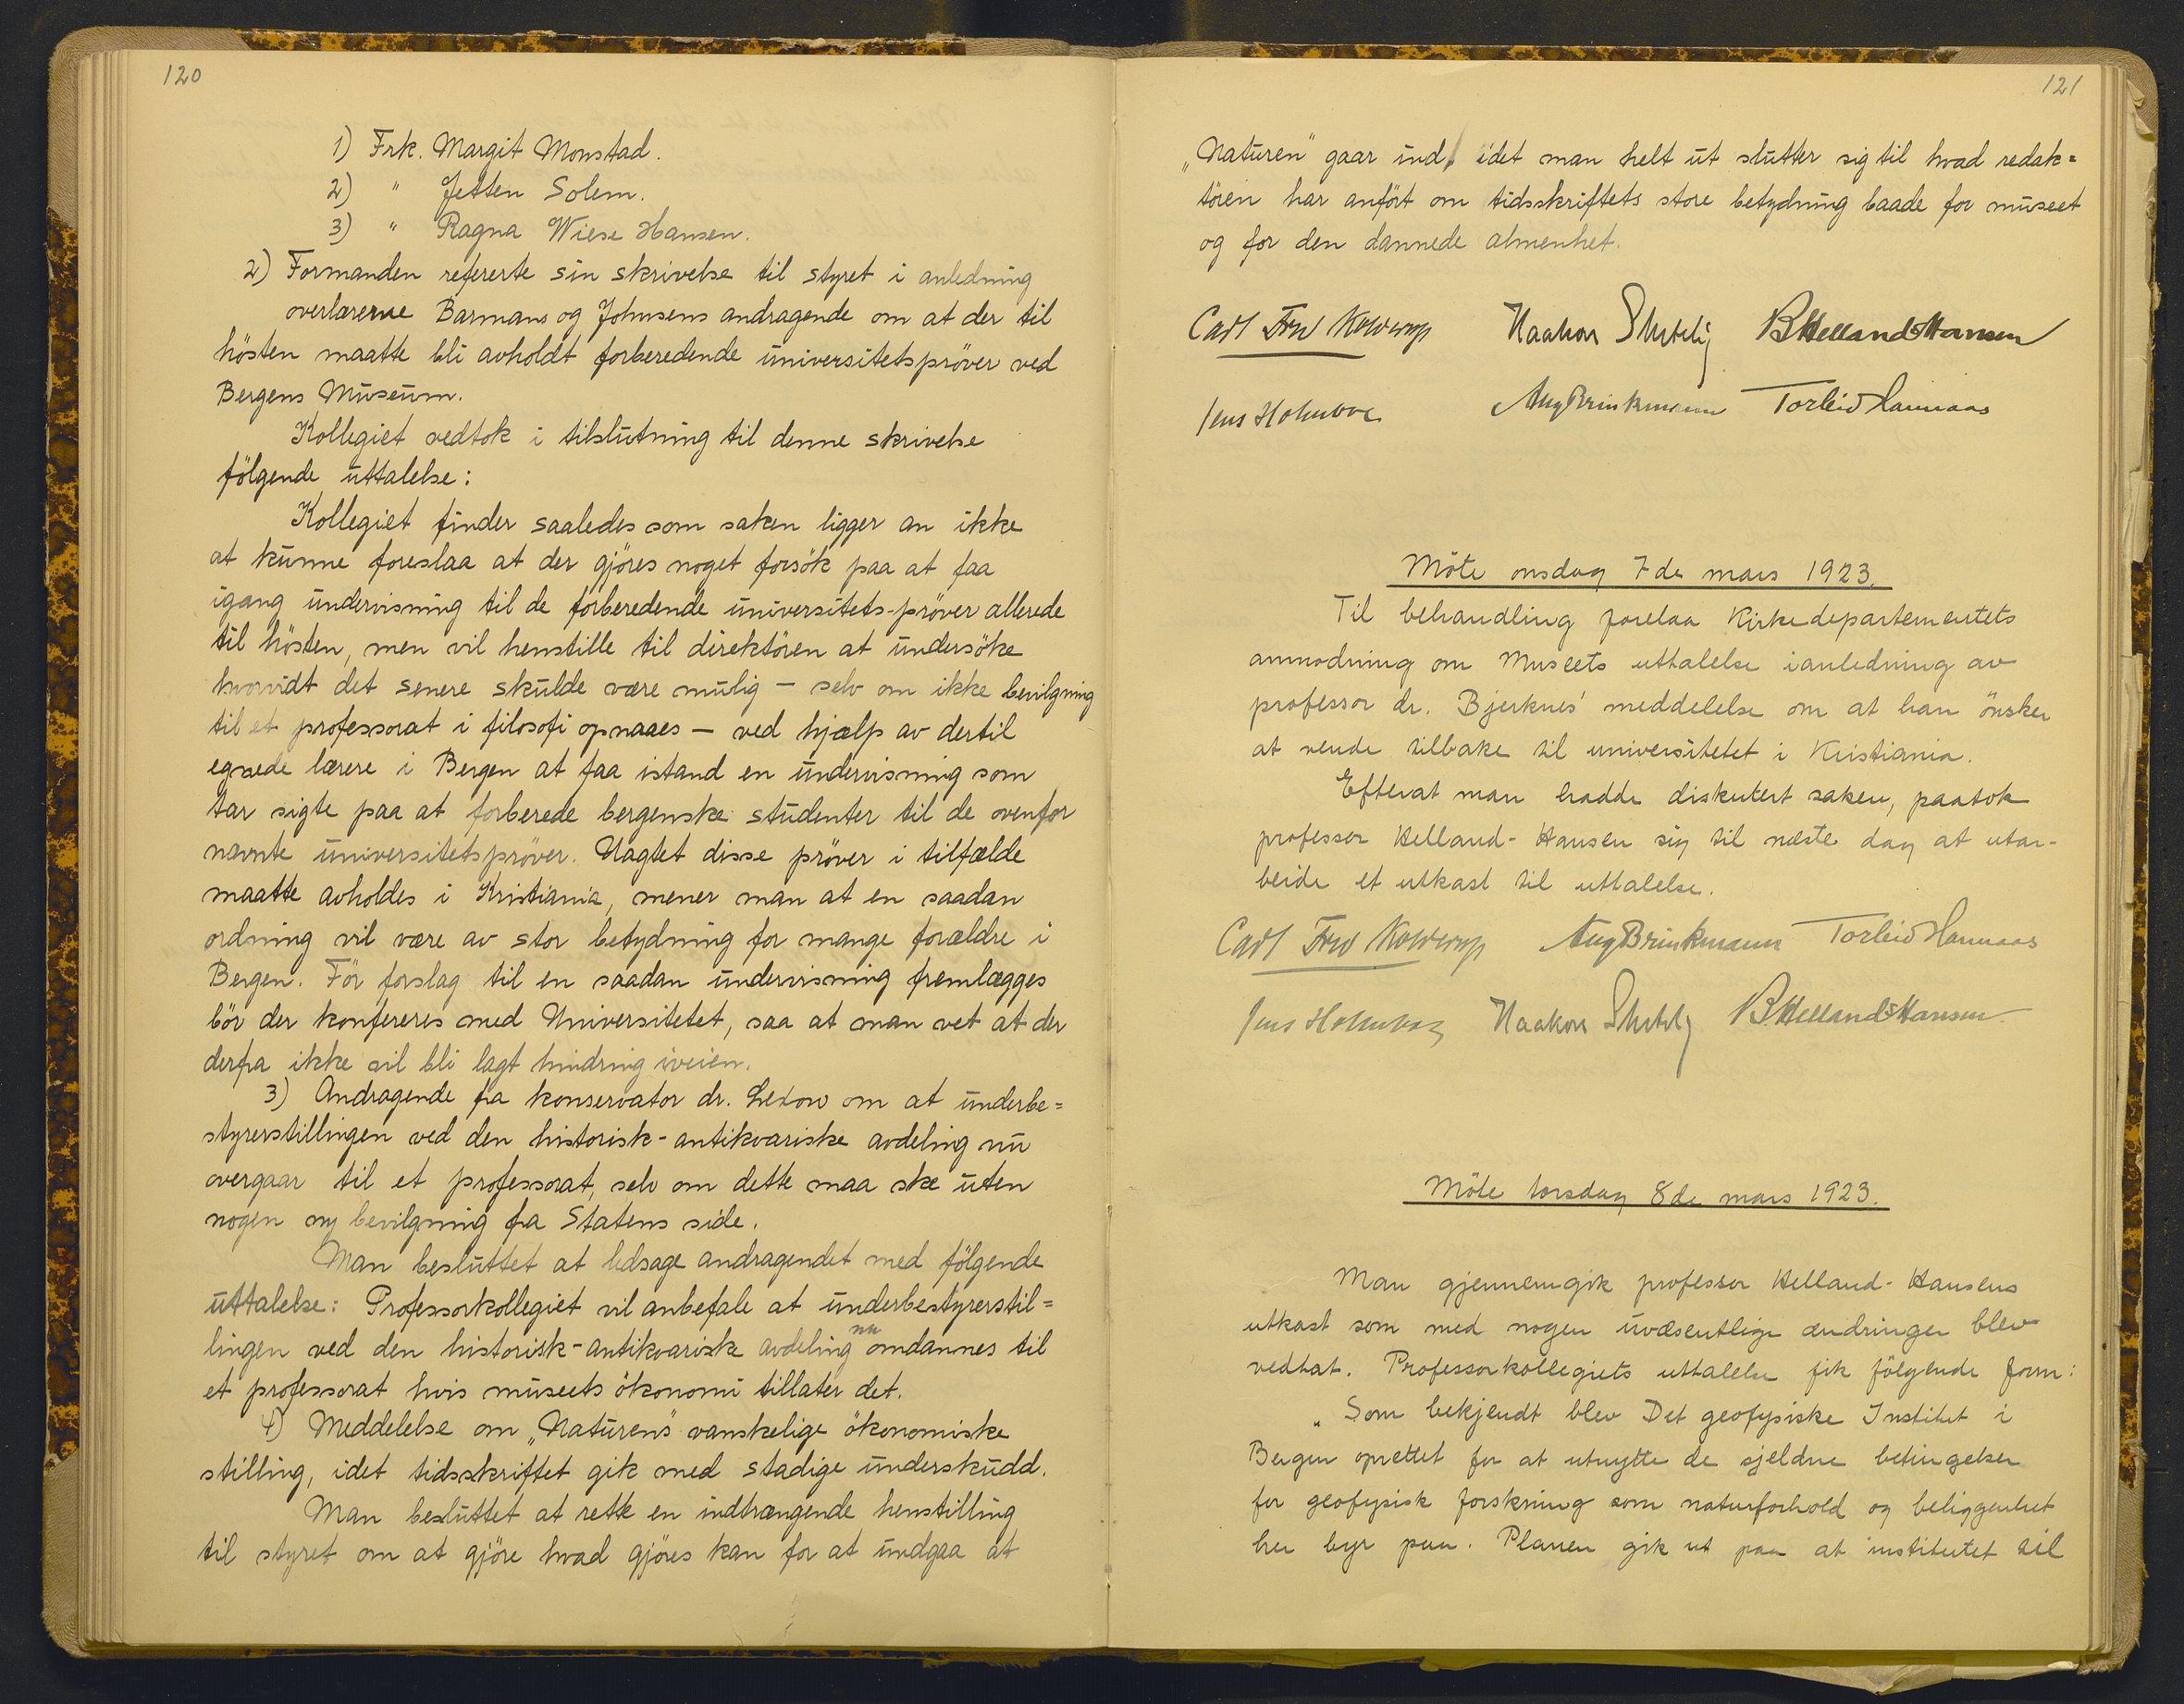 120
1) Frk. Margit Monstad.
2) " Jetten Solem.
3) " Ragna Wiese Hansen.
2) Formanden refererte sin skrivelse til styret i anledning
overlærerne Barmans og Johnsens andragende om at der til
hösten maatte bli avholdt forberedende universitetspröver ved
Bergens Museum.
Kollegiet vedtok i tilslutning til denne skrivelse
fölgende uttalelse:
Kollegiet finder saaledes som saken ligger an ikke
at kunne foreslaa at der gjöres noget forsök paa at faa
igang undervisning til de forberedende universitets-pröver allerede
til hösten, men vil henstille til direktören at undersöke
hvorvidt det senere skulde være mulig – selv om ikke bevilgning
til et professorat i filosofi opnaaes – ved hjælp av dertil
egnede lærere i Bergen at faa istand en undervisning som
tar sigte paa at forberede bergenske studenter til de ovenfor
nævnte universitetspröver. Uagtet disse pröver i tilfælde
maatte avholdes i Kristiania, mener man at en saadan
ordning vil være av stor betydning for mange forældre i
Bergen. För forslag til en saadan undervisning fremlægges
bör der konfereres med Universitetet, saa at man vet at der
derfra ikke vil bli lagt hindring iveien.
3) Andragende fra konservator dr. Lexow om at underbe=
styrerstillingen ved den historisk-antikvariske avdeling nu
overgaar til et professorat, selv om dette maa ske uten
nogen ny bevilgning fra Statens side.
Man besluttet at ledsage andragendet med fölgende
uttalelse: Professorkollegiet vil anbefale at underbestyrerstil=
lingen ved den historisk-antikvarisk avdeling nu omdannes til
et professorat hvis museets ökonomi tillater det.
4) Meddelelse om „Naturens" vanskelige ökonomiske
stilling, idet tidsskriftet gik med stadige underskudd.
Man besluttet at rette en indtrængende henstilling
til styret om at gjöre hvad gjöres kan for at undgaa at
121
„Naturen" gaar ind, idet man helt ut slutter sig til hvad redak=
tören har anfört om tidsskriftets store betydning baade for museet
og for den dannede almenhet.
Carl Fred Kolderup Haakon Shetelig B Helland-Hansen
Jens Holmboe Aug Brinkmann Torleiv Hannaas
Möte onsdag 7de mars 1923.
Til behandling forelaa Kirkedepartementets
anmodning om Museets uttalelse ianledning av
professor dr. Bjerknes' meddelelse om at han önsker
at vende tilbake til universitetet i Kristiania.
Efterat man hadde diskutert saken, paatok
professor Helland-Hansen sig til næste dag at utar-
beide et utkast til uttalelse.
Carl Fred Kolderup Aug Brinkmann Torleiv Hannaas
Jens Holmboe Haakon Shetelig B Helland-Hansen
Möte torsdag 8de mars 1923.
Man gjennemgik professor Helland-Hansens
utkast som med nogen uvæsentlige ændringer blev
vedtat. Professorkollegiets uttalelse fik fölgende form:
„Som bekjendt blev Det geofysiske Institut i
Bergen oprettet for at utnytte de sjeldne betingelser
for geofysisk forskning som naturforhold og beliggenhet
her byr paa. Planen gik ut paa at institutet til